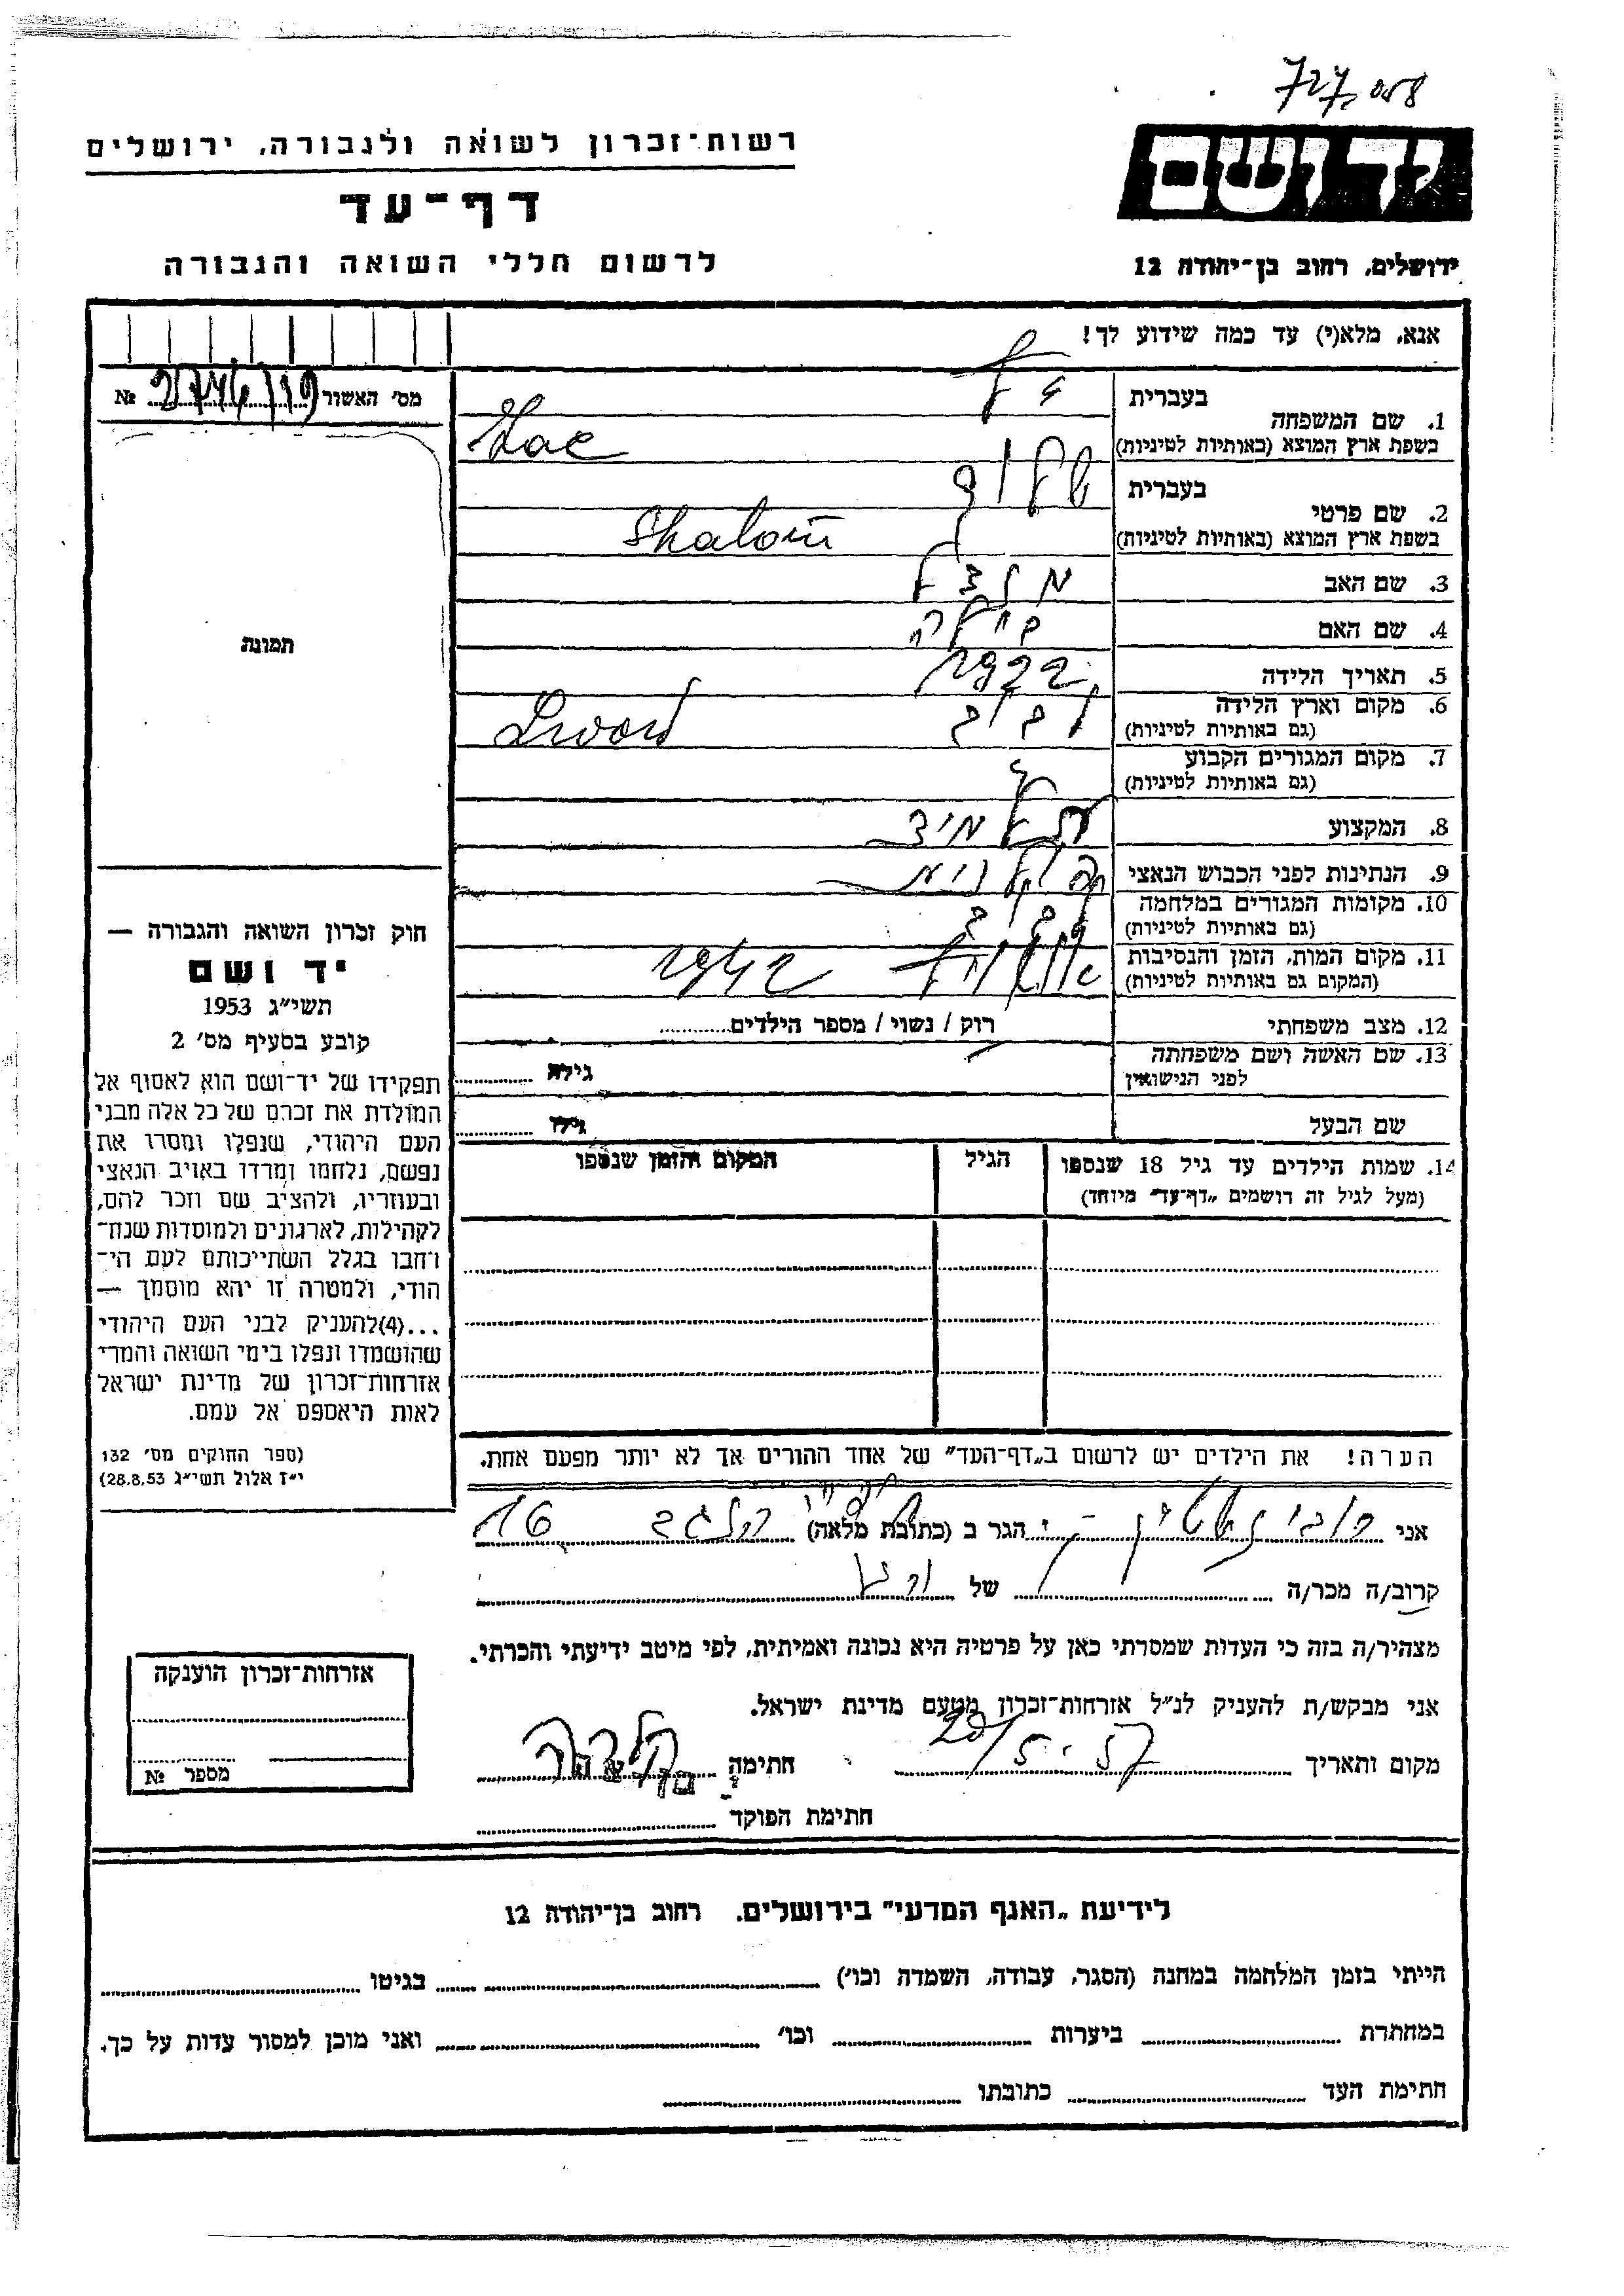 727,058
רשות־זכרון לשואה ולגבורה, ירושלים
יד ושם
דף־עד
לרשום חללי השואה והגבורה
ירושלים, רחוב בן־יהודה 12
אנא, מלא(י) עד כמה שידוע לך!
מס׳ האשור №
1. שם המשפחה
בעברית
בשפת ארץ המוצא (באותיות לטיניות)
2. שם פרטי
בעברית שלום
בשפת ארץ המוצא (באותיות לטיניות) Shalom
3. שם האב
4. שם האם
5. תאריך הלידה 1922
6. מקום וארץ הלידה
(גם באותיות לטיניות) לבוב Lwow
7. מקום המגורים הקבוע
(גם באותיות לטיניות)
8. המקצוע תלמיד
9. הנתינות לפני הכבוש הנאצי פולנית
10. מקומות המגורים במלחמה
(גם באותיות לטיניות)
11. מקום המות, הזמן והנסיבות
(המקום גם באותיות לטיניות) 1942
12. מצב משפחתי רוק / נשוי / מספר הילדים
13. שם האשה ושם משפחתה
לפני הנישואין גילה
שם הבעל גילו
14. שמות הילדים עד גיל 18 שנספו
(מעל לגיל זה רושמים „דף־עד״ מיוחד)
הגיל
המקום והזמן שנספו
תמונה
חוק זכרון השואה והגבורה —
יד ושם
תשי״ג 1953
קובע בסעיף מס׳ 2
תפקידו של יד־ושם הוא לאסוף אל
המולדת את זכרם של כל אלה מבני
העם היהודי, שנפלו ומסרו את
נפשם, נלחמו ומרדו באויב הנאצי
ובעוזריו, ולהציב שם וזכר להם,
לקהילות, לארגונים ולמוסדות שנח־
רחבו בגלל השתייכותם לעם הי־
הודי, ולמטרה זו יהא מוסמך —
...(4)להעניק לבני העם היהודי
שהושמדו ונפלו בימי השואה והמרי
אזרחות־זכרון של מדינת ישראל
לאות היאספם אל עמם.
(ספר החוקים מס׳ 132
י״ז אלול תשי״ג 28.8.53)
הערה! את הילדים יש לרשום ב„דף־העד״ של אחד ההורים אך לא יותר מפעם אחת.
אני הגר ב (כתובת מלאה) 16
קרוב/ה מכר/ה של
מצהיר/ה בזה כי העדות שמסרתי כאן על פרטיה היא נכונה ואמיתית, לפי מיטב ידיעתי והכרתי.
אני מבקש/ת להעניק לנ״ל אזרחות־זכרון מטעם מדינת ישראל.
מקום ותאריך 20/5.57 חתימה
חתימת הפוקד
אזרחות־זכרון הוענקה
מספר №
לידיעת „האגף המדעי״ בירושלים. רחוב בן־יהודה 12
הייתי בזמן המלחמה במחנה (הסגר, עבודה, השמדה וכו׳) בגיטו
במחתרת ביערות וכו׳ ואני מוכן למסור עדות על כך.
חתימת העד כתובתו